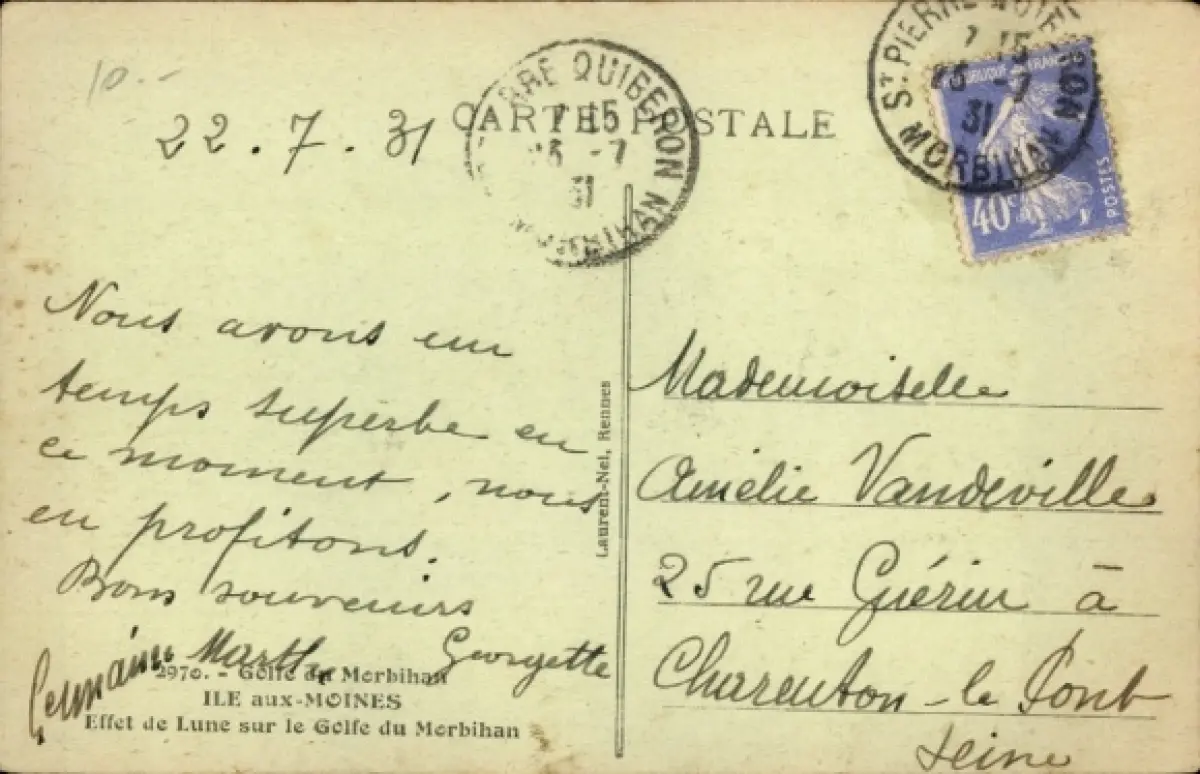 10.-
22.7.31
CARTE POSTALE
QUIBERON
7 15
-7
31
MORBIHAN
ST PIERRE QUIBERON
15
-7
31
MORBIHAN
REPUBLIQUE FRANÇAISE
40c
POSTES
Nous avons un
temps superbe en
ce moment, nous
en profitons.
Bons souvenirs
Germaine Marthe Georgette
2970. - Golfe du Morbihan
ILE aux-MOINES
Effet de Lune sur le Golfe du Morbihan
Laurent-Nel, Rennes
Mademoiselle
Amélie Vandeville
25 rue Guérin à
Charenton-le Pont
Seine